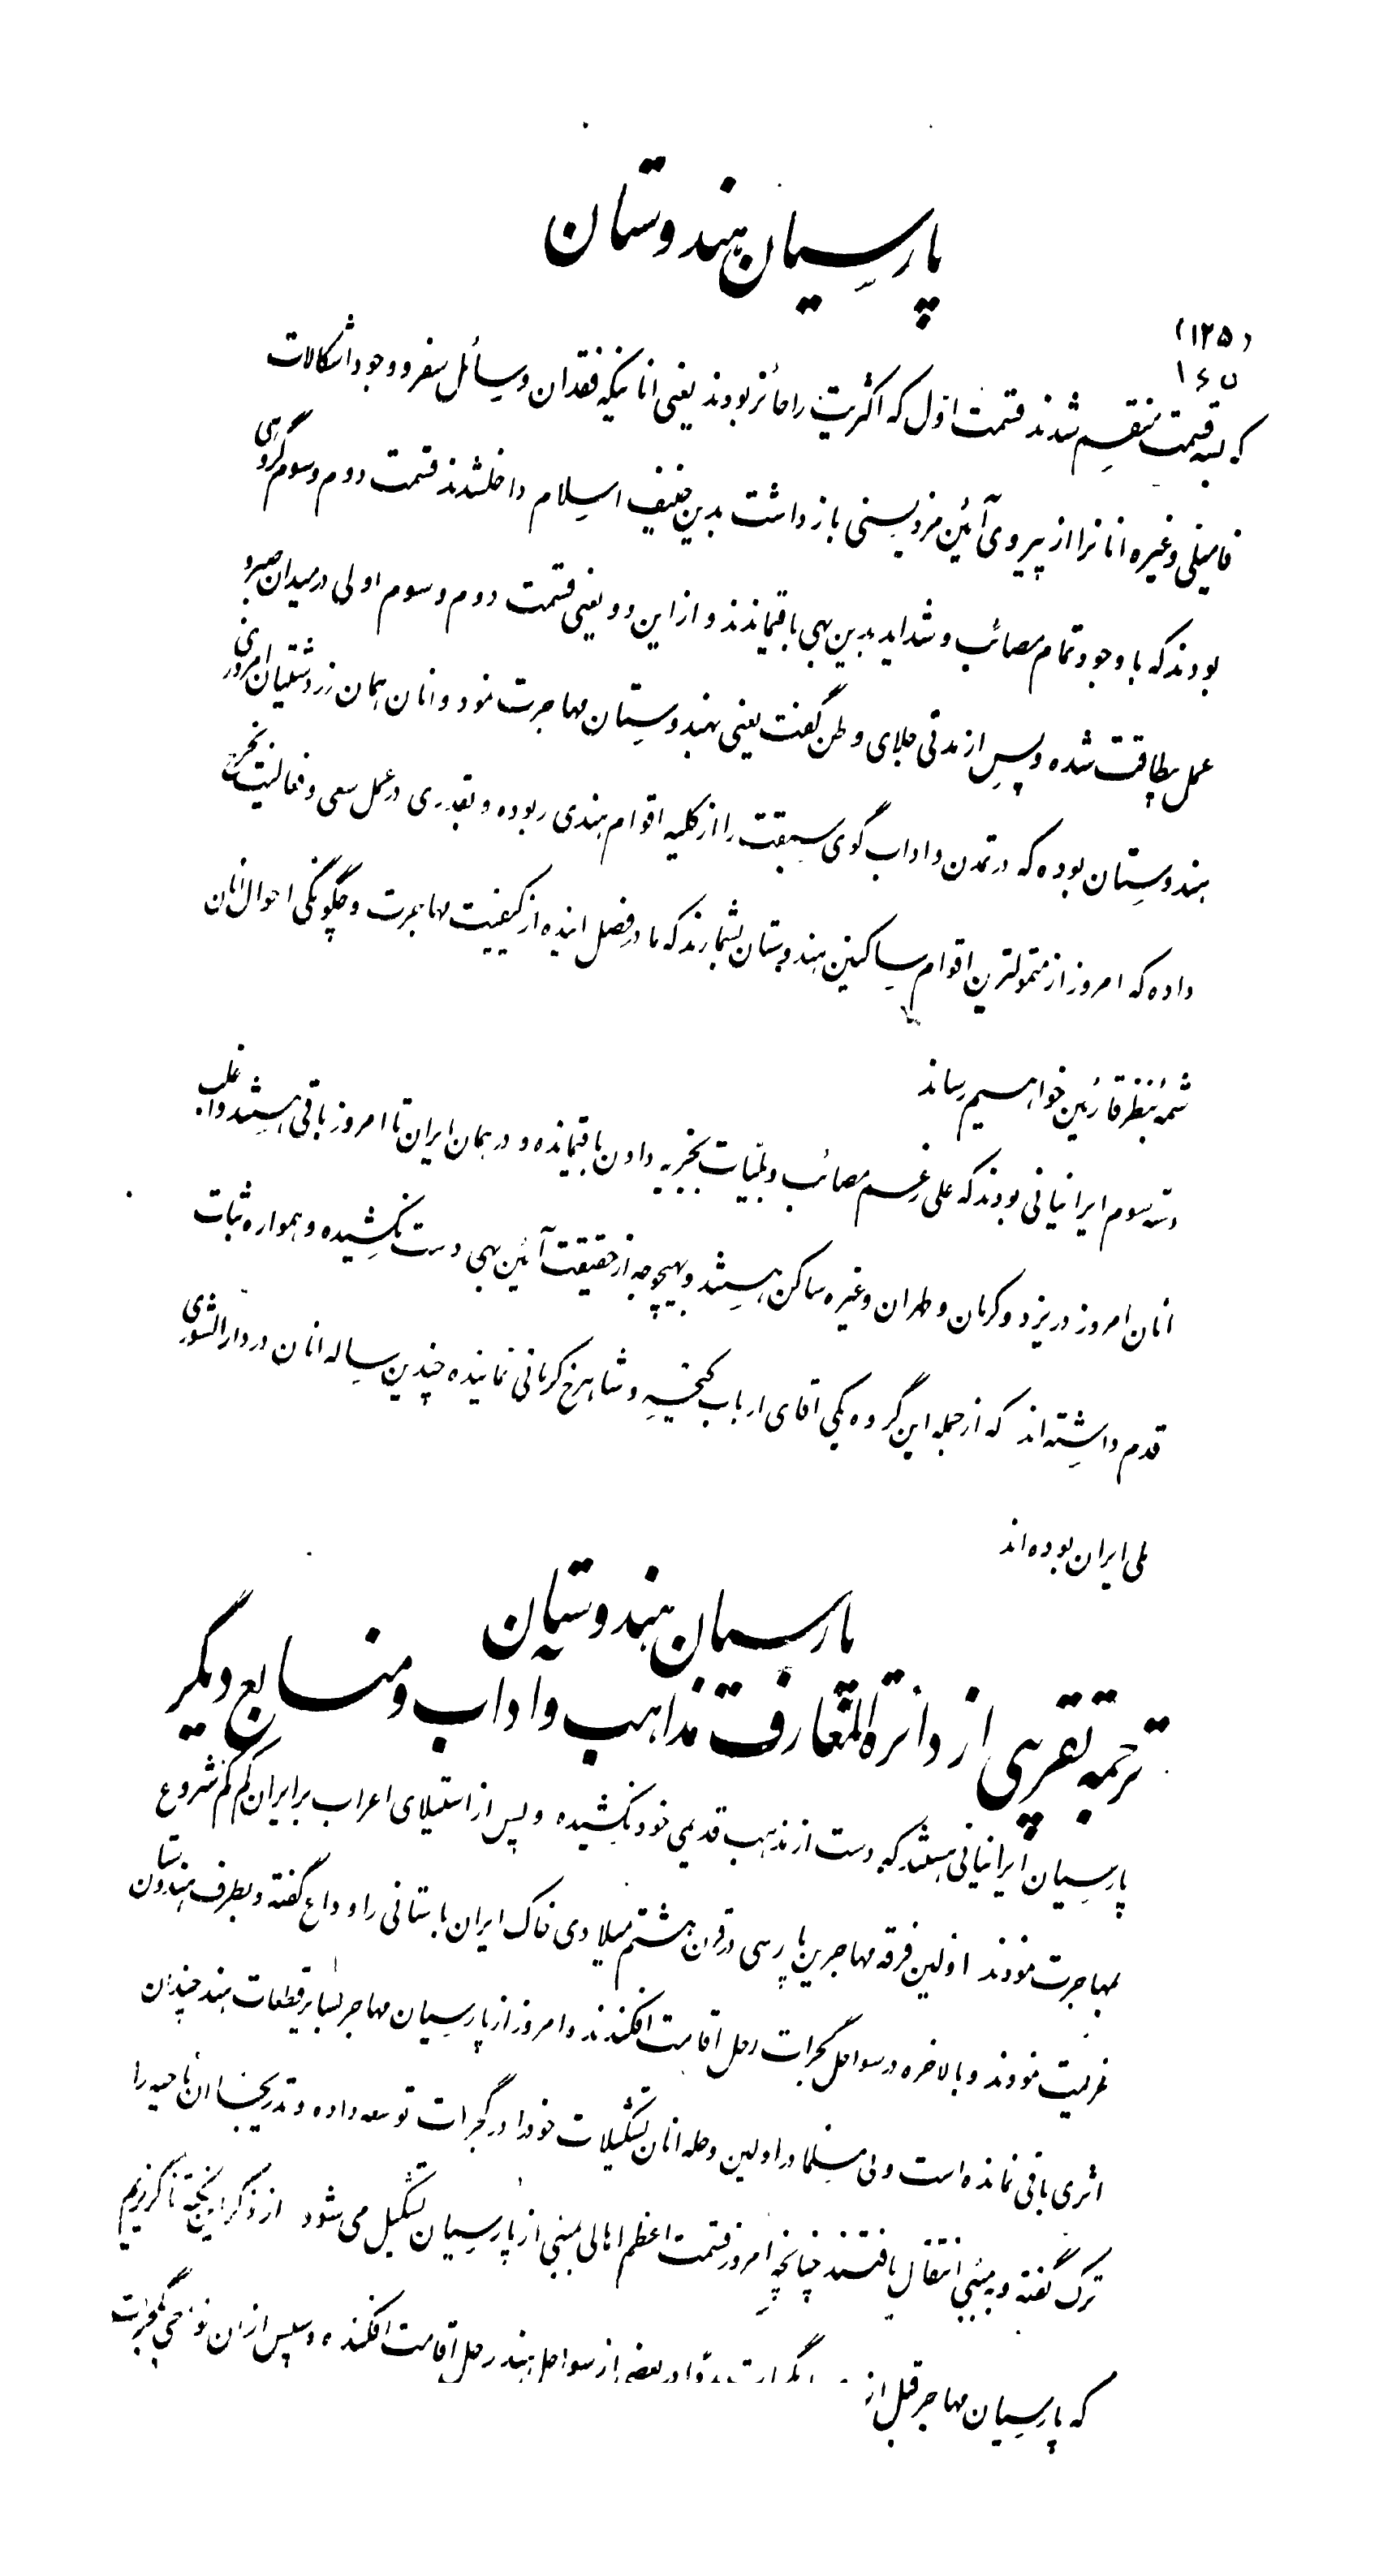 پارسیان هندوستان
(۱۲۵)
که بسه قسمت منقسم شدند قسمت اول که اکثریت را حائز بودند یعنی انانیکه فقدان وسائل سفر و وجود اشکالات
فامیلی و غیره انانرا از پیروی آئین مزدیسنی باز داشت بدین حنیف اسلام داخلشدند قسمت دوم و سوم گروهی
بودند که با وجود تمام مصائب و شداید بدین بهی باقیماندند و از این دو یعنی قسمت دوم و سوم اولی در میدان صبر و
عمل بیطاقت شده و پس از مدتی جلای وطن گفت یعنی بهندوستان مهاجرت نمود و انان همان زردشتیان امروزی
هندوستان بوده که در تمدن و اداب گوی سبقت را از کلیه اقوام هندی ربوده و بقدری در عمل سعی و فعالیت بخرج
داده که امروز از متمولترین اقوام ساکنین هندوستان بشمارند که ما در فصل اینده از کیفیت مهاجرت و چگونگی احوال انان
شمهٔ بنظر قارئین خواهیم رساند
دسته سوم ایرانیانی بودند که علی رغم مصائب و بلیات بجزیه دادن باقیمانده و در همان ایران تا امروز باقی هستند و اغلب
انان امروز در یزد و کرمان و طهران و غیره ساکن هستند و بهیچوجه از حقیقت آئین بهی دست نکشیده و همواره ثبات
قدم داشته‌اند که از جمله این گروه یکی اقای ارباب کیخسرو شاهرخ کرمانی نماینده چندین ساله انان در دارالشورای
ملی ایران بوده‌اند
پارسیان هندوستان
ترجمه تقریبی از دائرةالمعارف مذاهب و اداب و منابع دیگر
پارسیان ایرانیانی هستند که دست از مذهب قدیمی خود نکشیده و پس از استیلای اعراب بر ایران کم کم شروع
بمهاجرت نمودند اولین فرقه مهاجرین پارسی در قرن هشتم میلادی خاک ایران باستانی را وداع گفته و بطرف هندوستان
عزیمت نمودند و بالاخره در سواحل گجرات رحل اقامت افکندند و امروز از پارسیان مهاجر بسایر قطعات هند چندان
اثری باقی نمانده است ولی مسلما در اولین وحله انان تشکیلات خود را در گجرات توسعه داده و تدریجا ان ناحیه را
ترک گفته و به بمبئی انتقال یافتند چنانچه امروز قسمت اعظم اهالی بمبئی از پارسیان تشکیل می شود از ذکر این نکته ناگزیریم
که پارسیان مهاجر قبل از در بعضی از سواحل هند رحل اقامت افکنده و سپس از ان نواحی گجرات